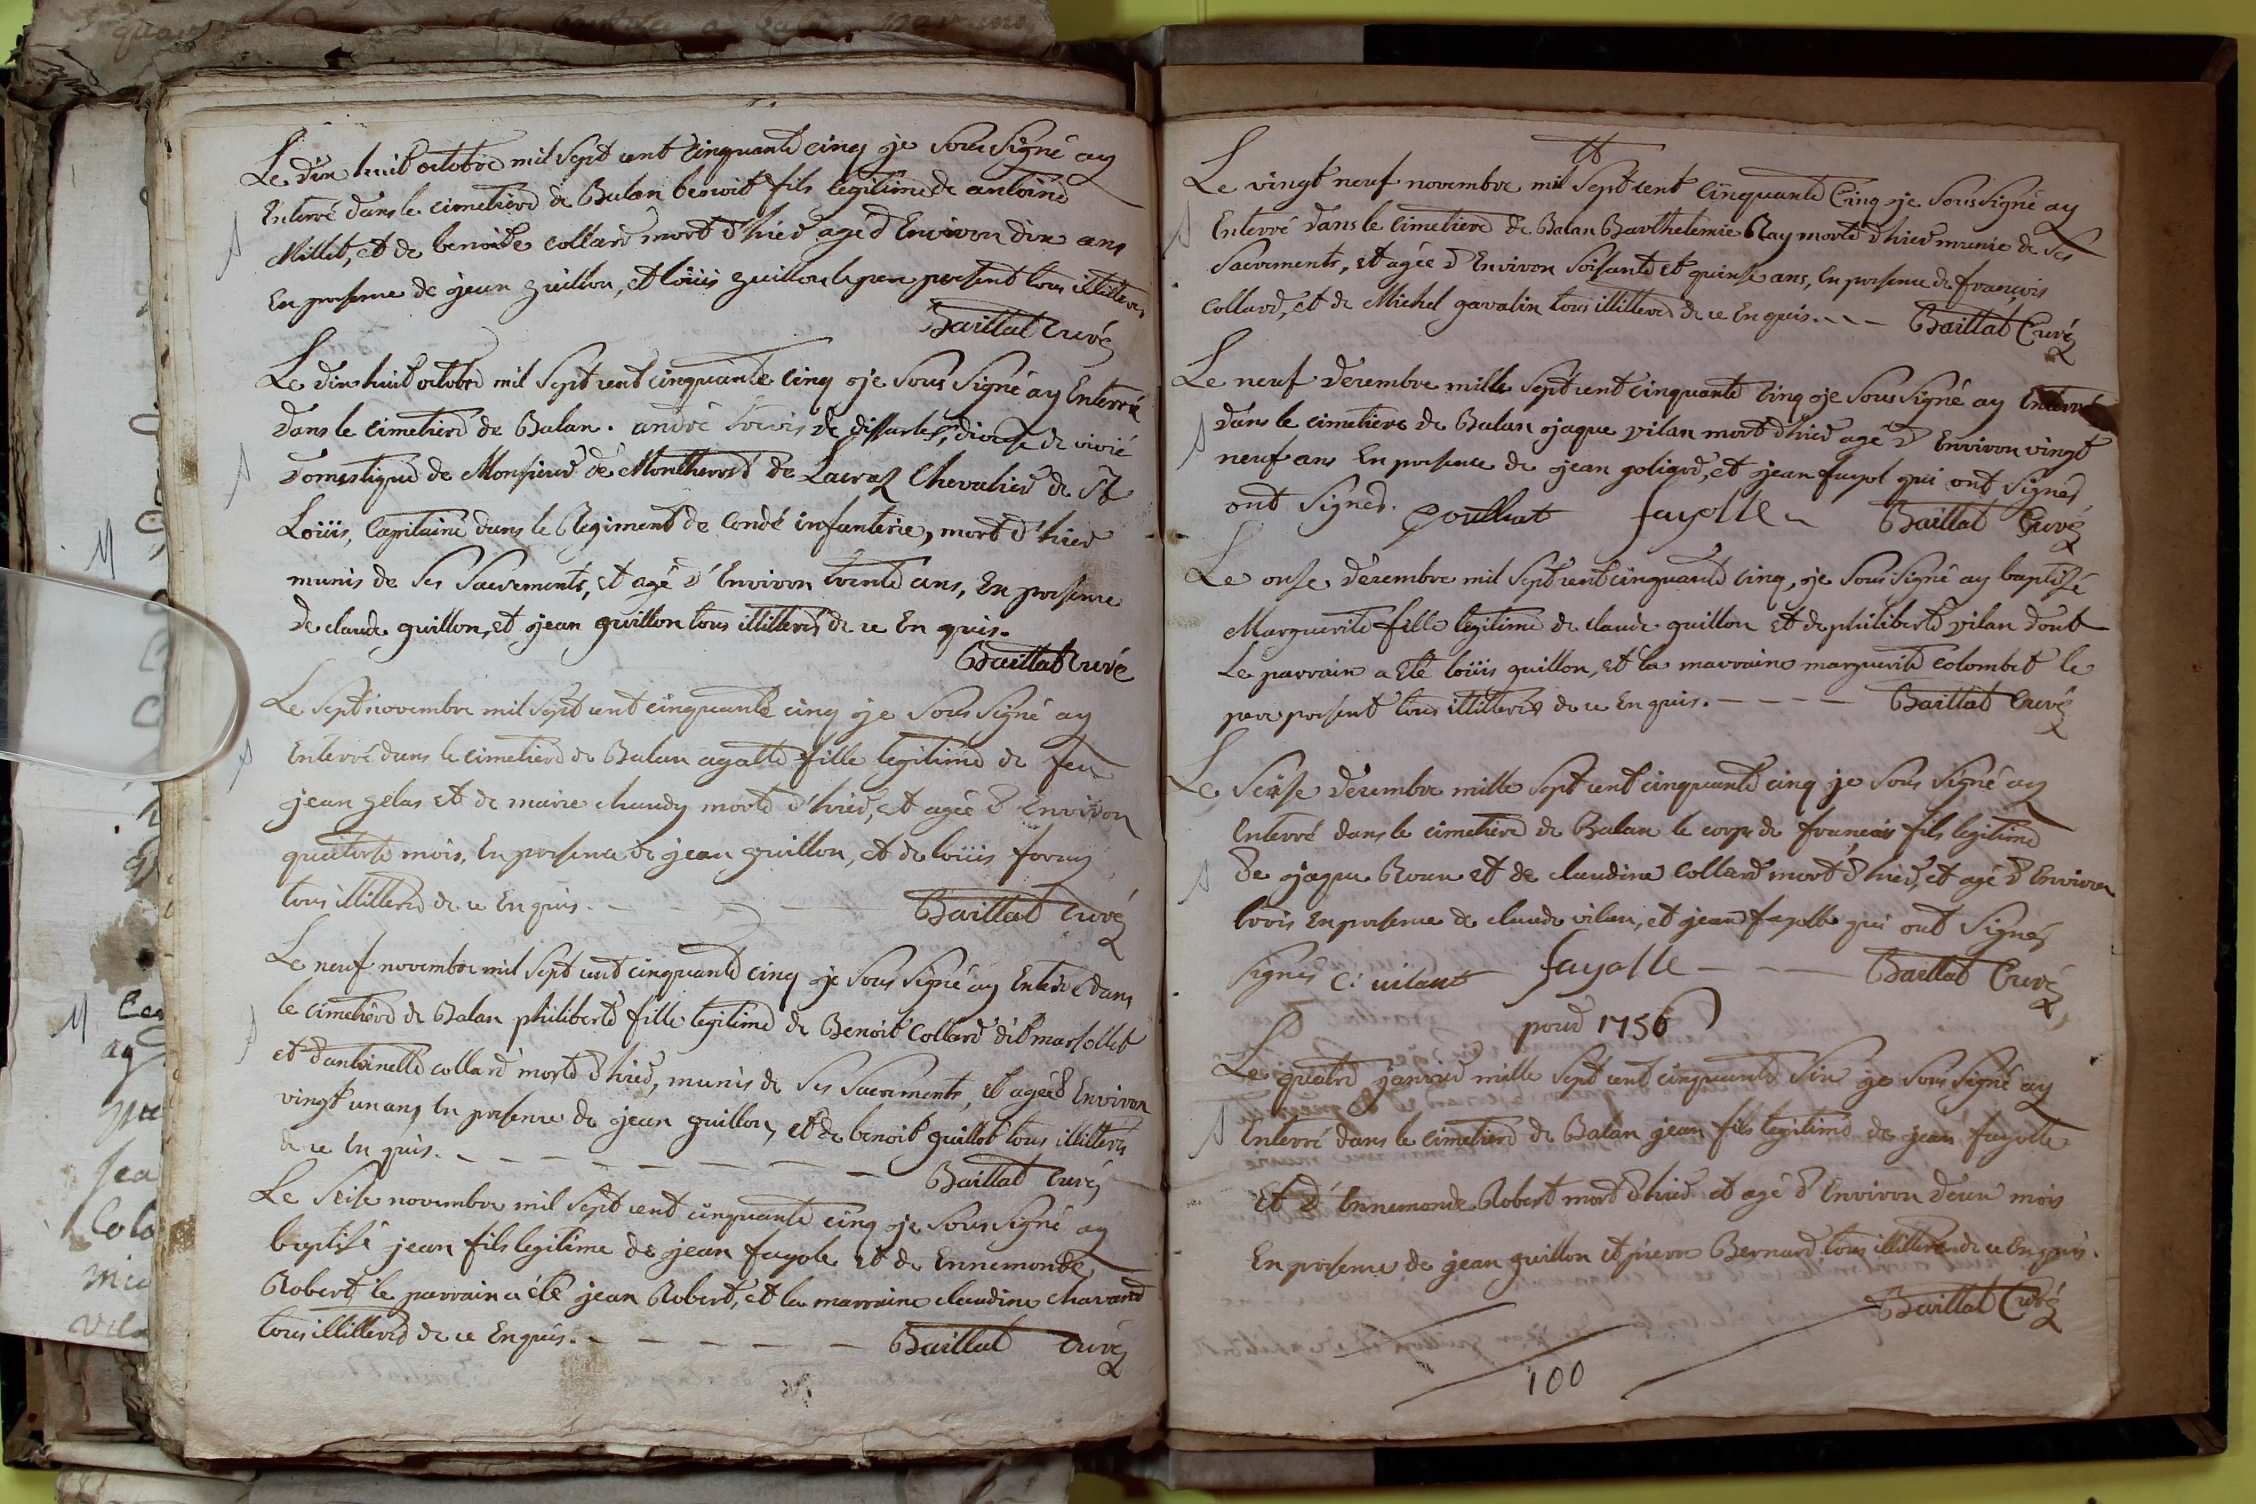 Le dix huit octobre mil sept cent cinquante cinq je soussigné ay
Enterré dans le cimetiere de Balan benoit fils legitime de antoine
Millet, et de benoite collard mort d'hier agé d'Environ dix ans
En presence de jean guillon, et loüis guillon le pere present tous illiteres
Baillat Curé
Le dix huit octobre mil sept cent cinquante cinq je sous signé ay Enterré
dans le cimetiere de Balan. andré de dioçese de
domestique de Monsieur de de Chevalier de St
Loüis, Capitaine dans le Regiment de Condé infanterie, mort d'hier
munis de ses sacrements, et agé d'Environ trente ans, En presence
de claude guillon, et jean guillon tous illiterés de ce En quis.
Baillat Curé
Le sept novembre mil sept cent cinquante cinq je sous signé ay
Enterré dans le cimetiere de Balan agatte fille legitime de feu
jean gelas et de marie chaudy morte d'hier, et agée d'Environ
quatorse mois, En presence de jean guillon, et de loüis
tous illiteré de ce Enquis. - - - -
Baillat Curé
Le neuf novembre mil sept cent cinquante cinq je sous signé ay Enterré dans
le cimetiere de Balan philiberte fille legitime de Benoit Collard dit marsollet
et d'antoinette collard morte d'hier, munis de ses sacrements, et agée d'Environ
vingt un ans En presence de jean guillon, et de benoit guillot tous illiterés
de ce En quis. - - - - - - -
Baillat Curé
Le seise novembre mil sept cent cinquante cinq je sous signé ay
baptisé jean fils legitime de jean fayole et de Ennemonde
Robert, le parrain a été jean Robert, et la marraine claudine chavand
tous illiteré de ce Enquis. - - - - Baillat Curé
Le vingt neuf novembre mil sept cent cinquante Cinq je soussigné ay
Enterré dans le Cimetiere de Balan Barthelemie Ray morte d'hier munie de ses
Sacrements, et agée d'Environ soisante et quinse ans, En presence de françois
Collard, et de Michel gavalin tous illiteré de ce En quis. - - - Baillat Curé
Le neuf decembre mille sept cent cinquante cinq je sous signé ay Enterré
dans le cimetiere de Balan jaque vilan mort d'hier agé d'Environ vingt
neuf ans En presence de jean et jean fayol qui ont signés
ont signés. fayolle Baillat Curé
Le onse decembre mil sept cent cinquante cinq, je sous signé ay baptisé
Marguerite fille legitime de claude guillon et de philiberte vilan dont
Le parrain a Eté loüis guillon, et la marraine marguerite colombet le
pere present tous illiterés de ce En quis. - - - - Baillat Curé
Le seise decembre mille sept cent cinquante cinq je sous signé ay
Enterré dans le cimetiere de Balan le corps de françois fils legitime
de jaque Roux et de claudine Collard mort d'hier, et agé d'Environ
trois En presence de claude vilan, et jean fayolle qui ont signés
signés C: vilant fayolle - - - Baillat Curé
pour 1756
Le quatre janvier mille sept cent cinquante six je sous signé ay
Enterré dans le cimetiere de Balan jean fils legitime de jean fayolle
Et d'Ennemonde Robert mort d'hier et agé d'Environ d'eun mois
En presence de jean guillon et pierre Bernard tous illiteré de ce Enquis.
Baillat Curé
100